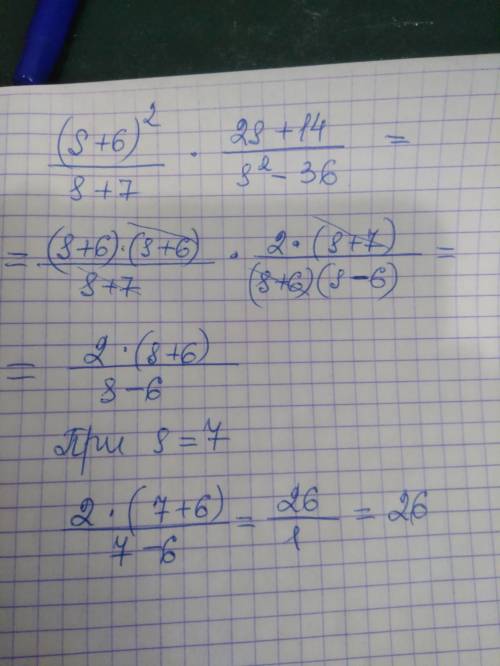 (s+6)² / s+7 · 2s+14 / s²-36 =
= (s+6)·(s+6) / s+7 · 2·(s+7) / (s+6)(s-6) =
= 2·(s+6) / s-6
При s=7
2·(7+6) / 7-6 = 26 / 1 = 26